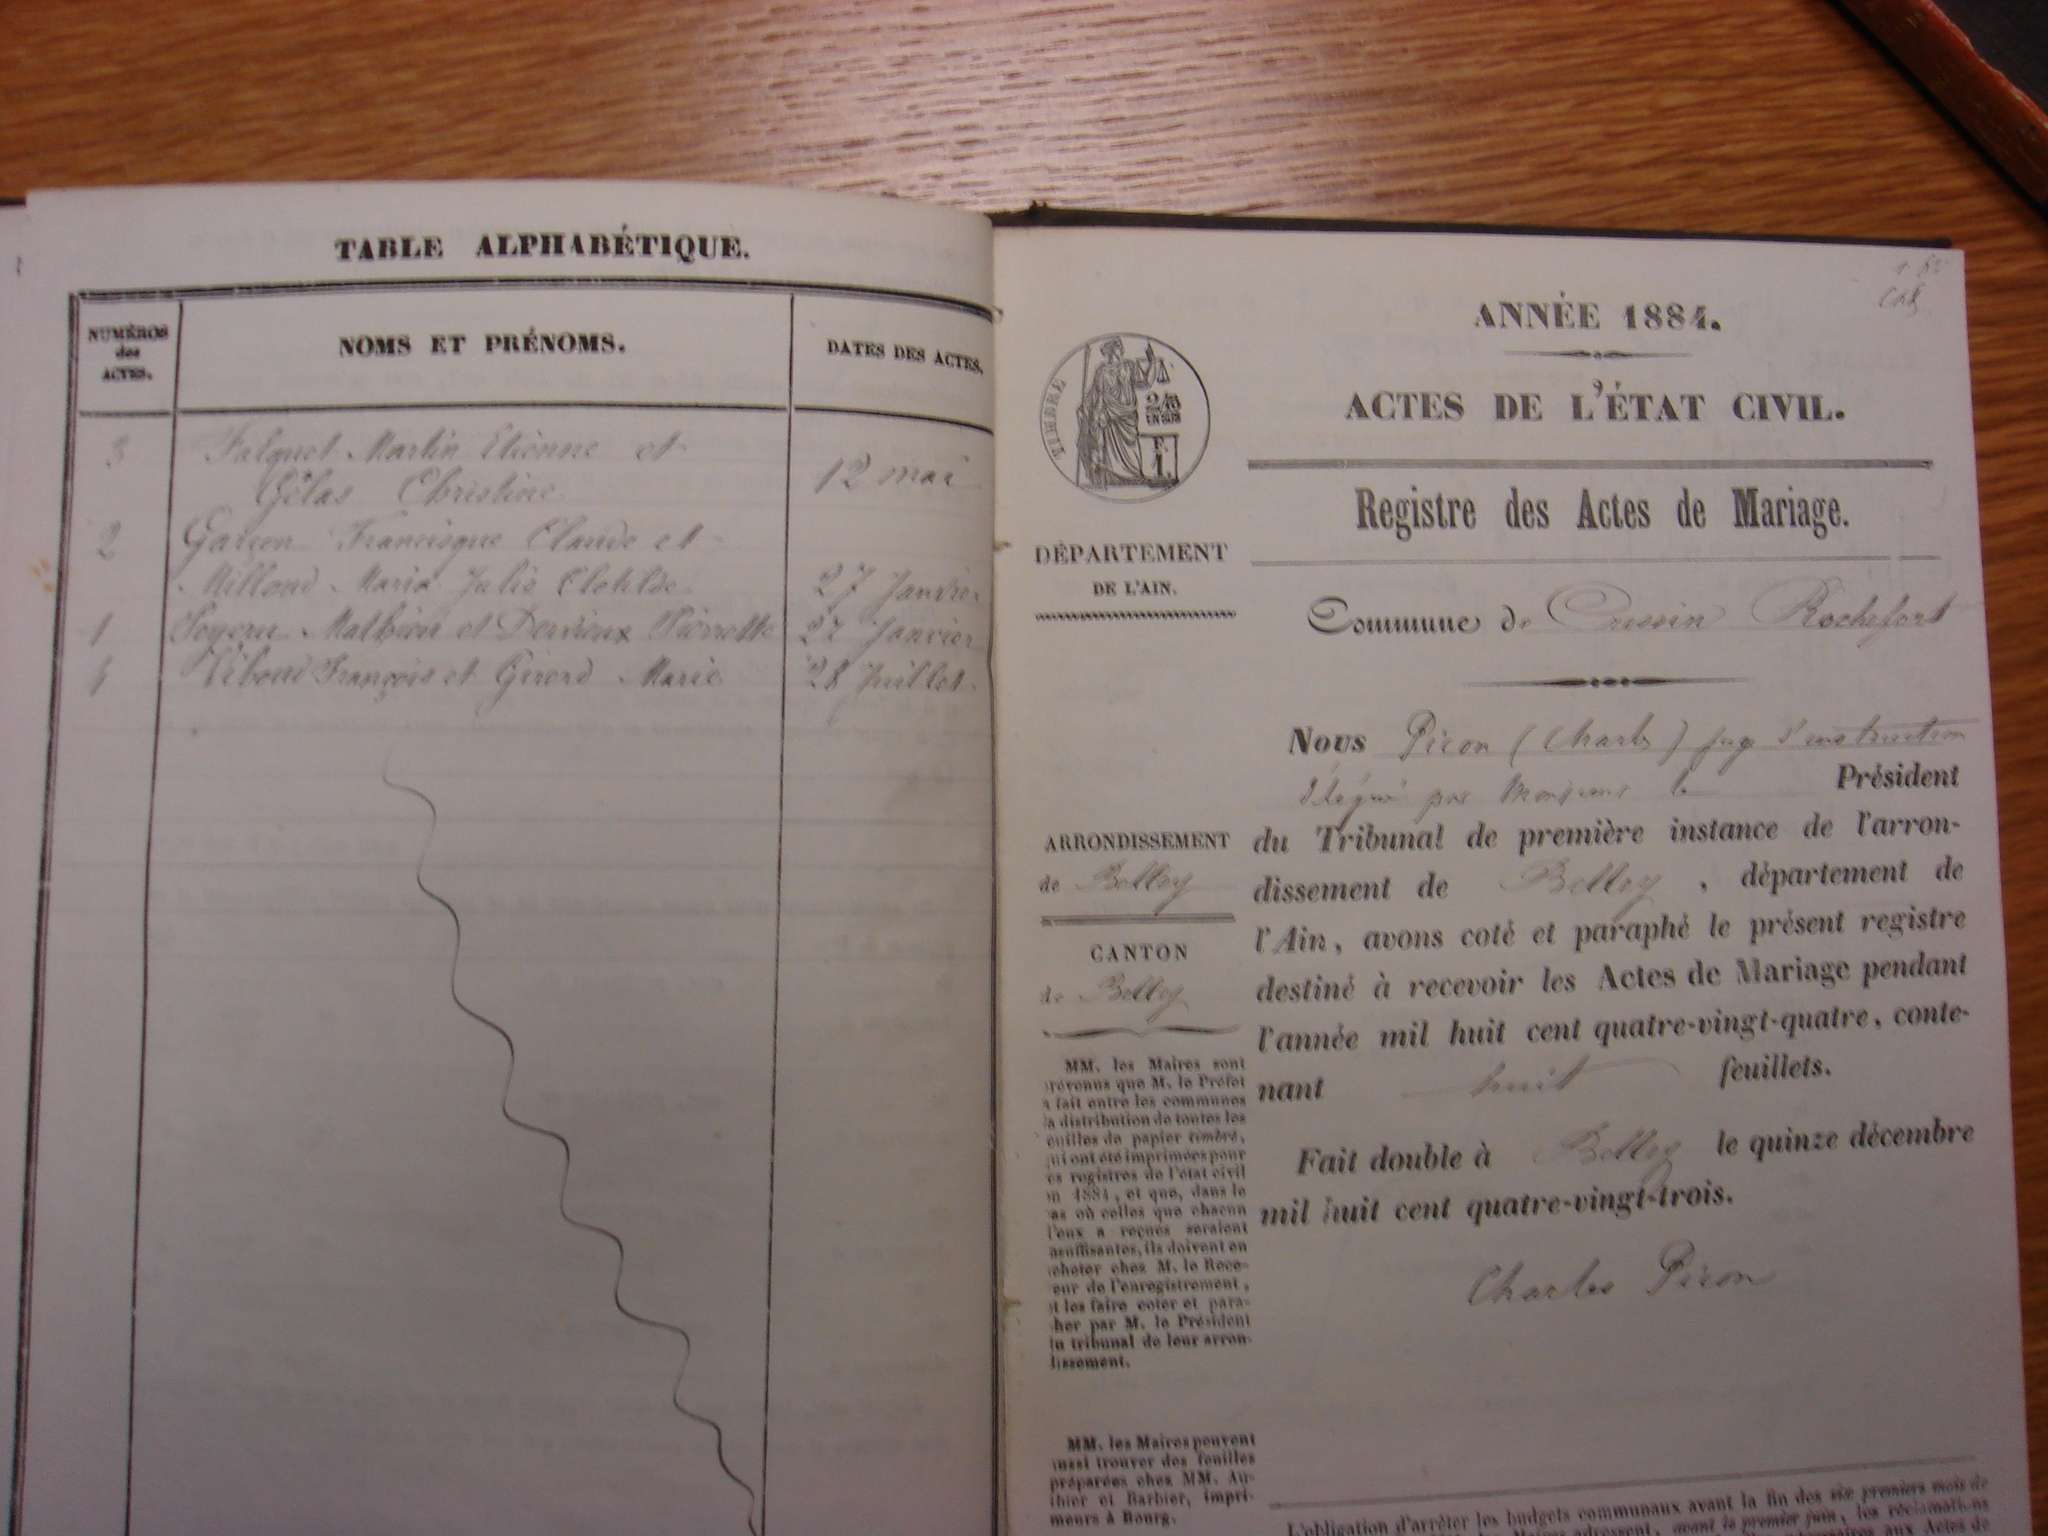 TABLE ALPHABÉTIQUE.
NUMÉROS
des
ACTES.
NOMS ET PRÉNOMS.
DATES DES ACTES.
3 Falquet Martin Etienne et
Gêlas Christine 12 mai
2 Garçon Francisque Claude et
Milloud Maria Julie Clotilde 27 Janvier
1 Mathieu et Pierrette 27 Janvier
4 François et Girerd Marie 28 Juillet
ANNÉE 1884.
ACTES DE L'ÉTAT CIVIL.
Registre des Actes de Mariage.
TIMBRE
2/10
EN SUS
F.
1.
DÉPARTEMENT
DE L'AIN.
Commune de Cressin Rochefort
Nous Piron (Charles) juge d'instruction
délégué par Monsieur le Président
du Tribunal de première instance de l'arron-
dissement de Belley, département de
l'Ain, avons coté et paraphé le présent registre
destiné à recevoir les Actes de Mariage pendant
l'année mil huit cent quatre-vingt-quatre, conte-
nant huit feuillets.
Fait double à Belley le quinze décembre
mil huit cent quatre-vingt-trois.
Charles Piron
ARRONDISSEMENT
de Belley
CANTON
de Belley
MM. les Maires sont
révenus que M. le Préfet
a fait entre les communes
la distribution de toutes les
euilles de papier timbré,
qui ont été imprimées pour
es registres de l'état civil
n 1884, et que, dans le
as où celles que chacun
l'eux a reçues seraient
nsuffisantes, ils doivent en
cheter chez M. le Rece-
eur de l'enregistrement,
t les faire coter et para-
her par M. le Président
u tribunal de leur arron-
lissement.
MM. les Maires peuvent
ussi trouver des feuilles
préparées chez MM. Au-
thier et Barbier, impri-
meurs à Bourg.
L'obligation d'arrêter les budgets communaux avant la fin des six premiers mois de
Maires adressent, avant le premier juin, les réclamations
aux Actes de